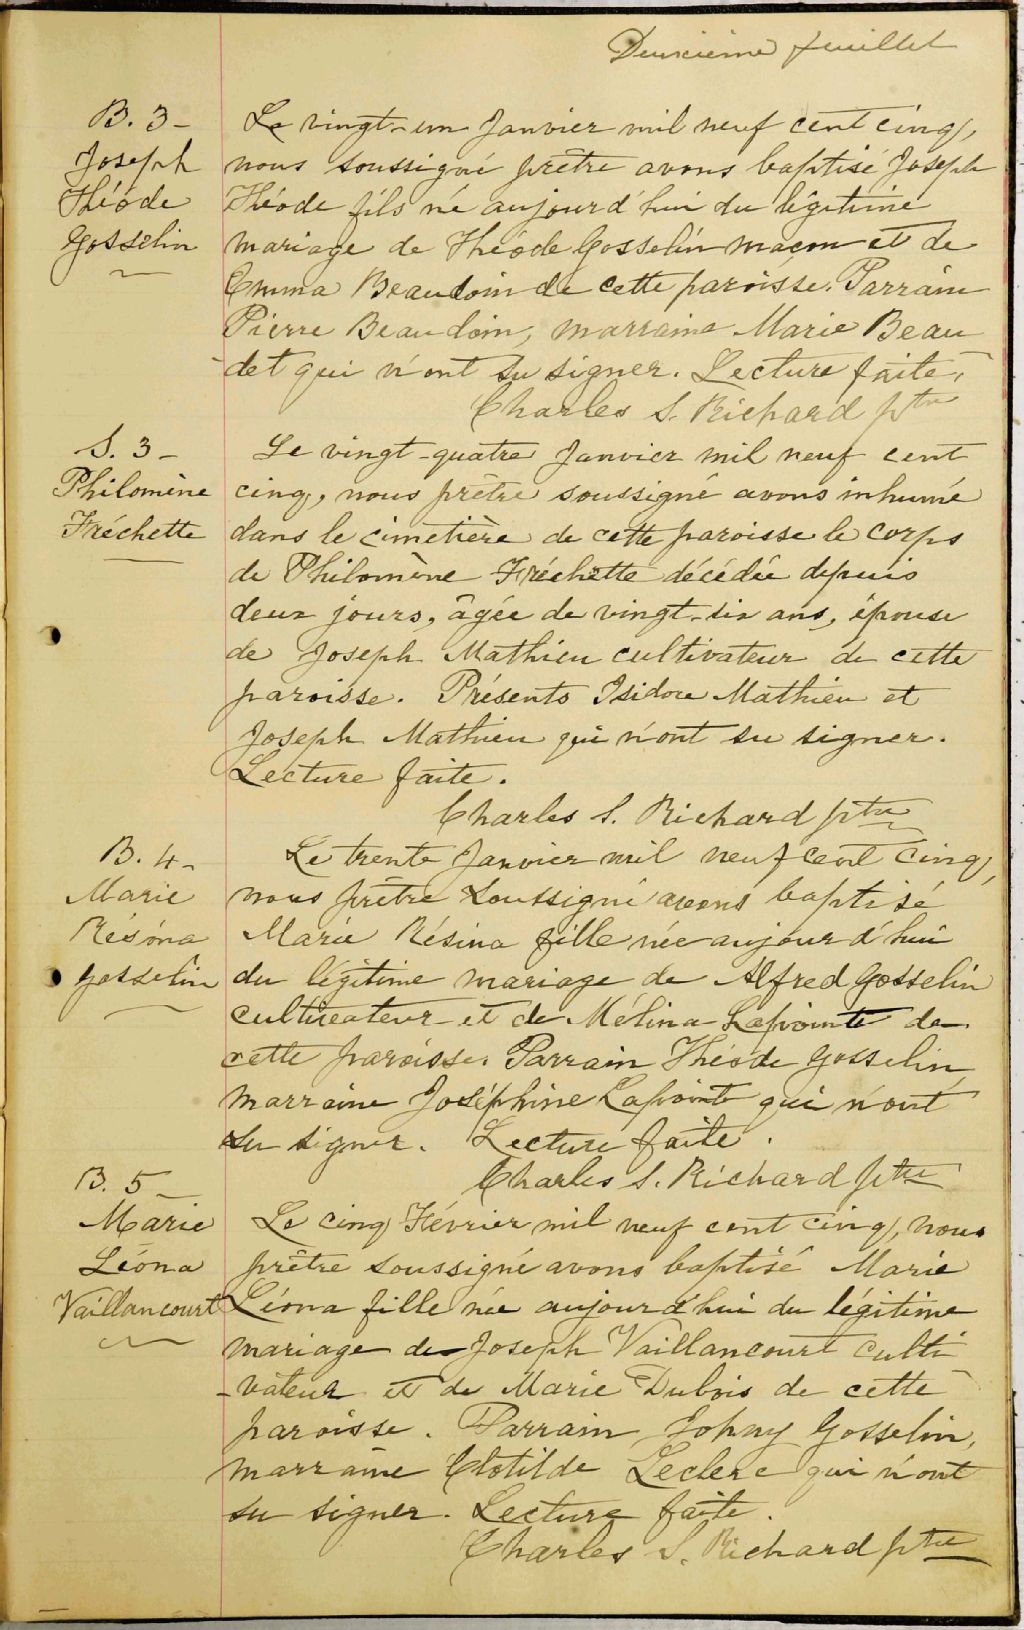 Deuxième feuillet
B. 3 -
Joseph
Théode
Gosselin
Le vingt-un Janvier mil neuf cent cinq,
nous soussigné prêtre avons baptisé Joseph
Théode fils né aujourd'hui du légitime
mariage de Théode Gosselin maçon et de
Emma Beaudoin de cette paroisse. Parrain
Pierre Beaudoin, marraine Marie Beau
-det qui n'ont su signer. Lecture faite.
Charles S. Richard ptre
S. 3 -
Philomène
Fréchette
Le vingt-quatre Janvier mil neuf cent
cinq, nous prêtre soussigné avons inhumé
dans le cimetière de cette paroisse le corps
de Philomène Fréchette décédée depuis
deux jours, âgée de vingt-six ans, épouse
de Joseph Mathieu cultivateur de cette
paroisse. Présents Isidore Mathieu et
Joseph Mathieu qui n'ont su signer.
Lecture faite.
Charles S. Richard ptre
B. 4 -
Marie
Résina
Gosselin
Le trente Janvier mil neuf cent cinq,
nous prêtre soussigné avons baptisé
Marie Résina fille née aujourd'hui
du légitime mariage de Alfred Gosselin
cultivateur et de Mélina Lapointe de
cette paroisse. Parrain Théode Gosselin,
marraine Joséphine Lapointe qui n'ont
su signer. Lecture faite.
Charles S. Richard ptre
B. 5 -
Marie
Léona
Vaillancourt
Le cinq Février mil neuf cent cinq, nous
prêtre soussigné avons baptisé Marie
Léona fille née aujourd'hui du légitime
mariage de Joseph Vaillancourt culti
-vateur et de Marie Dubois de cette
paroisse. Parrain Johny Gosselin,
marraine Clotilde Leclerc qui n'ont
su signer. Lecture faite.
Charles S. Richard ptre